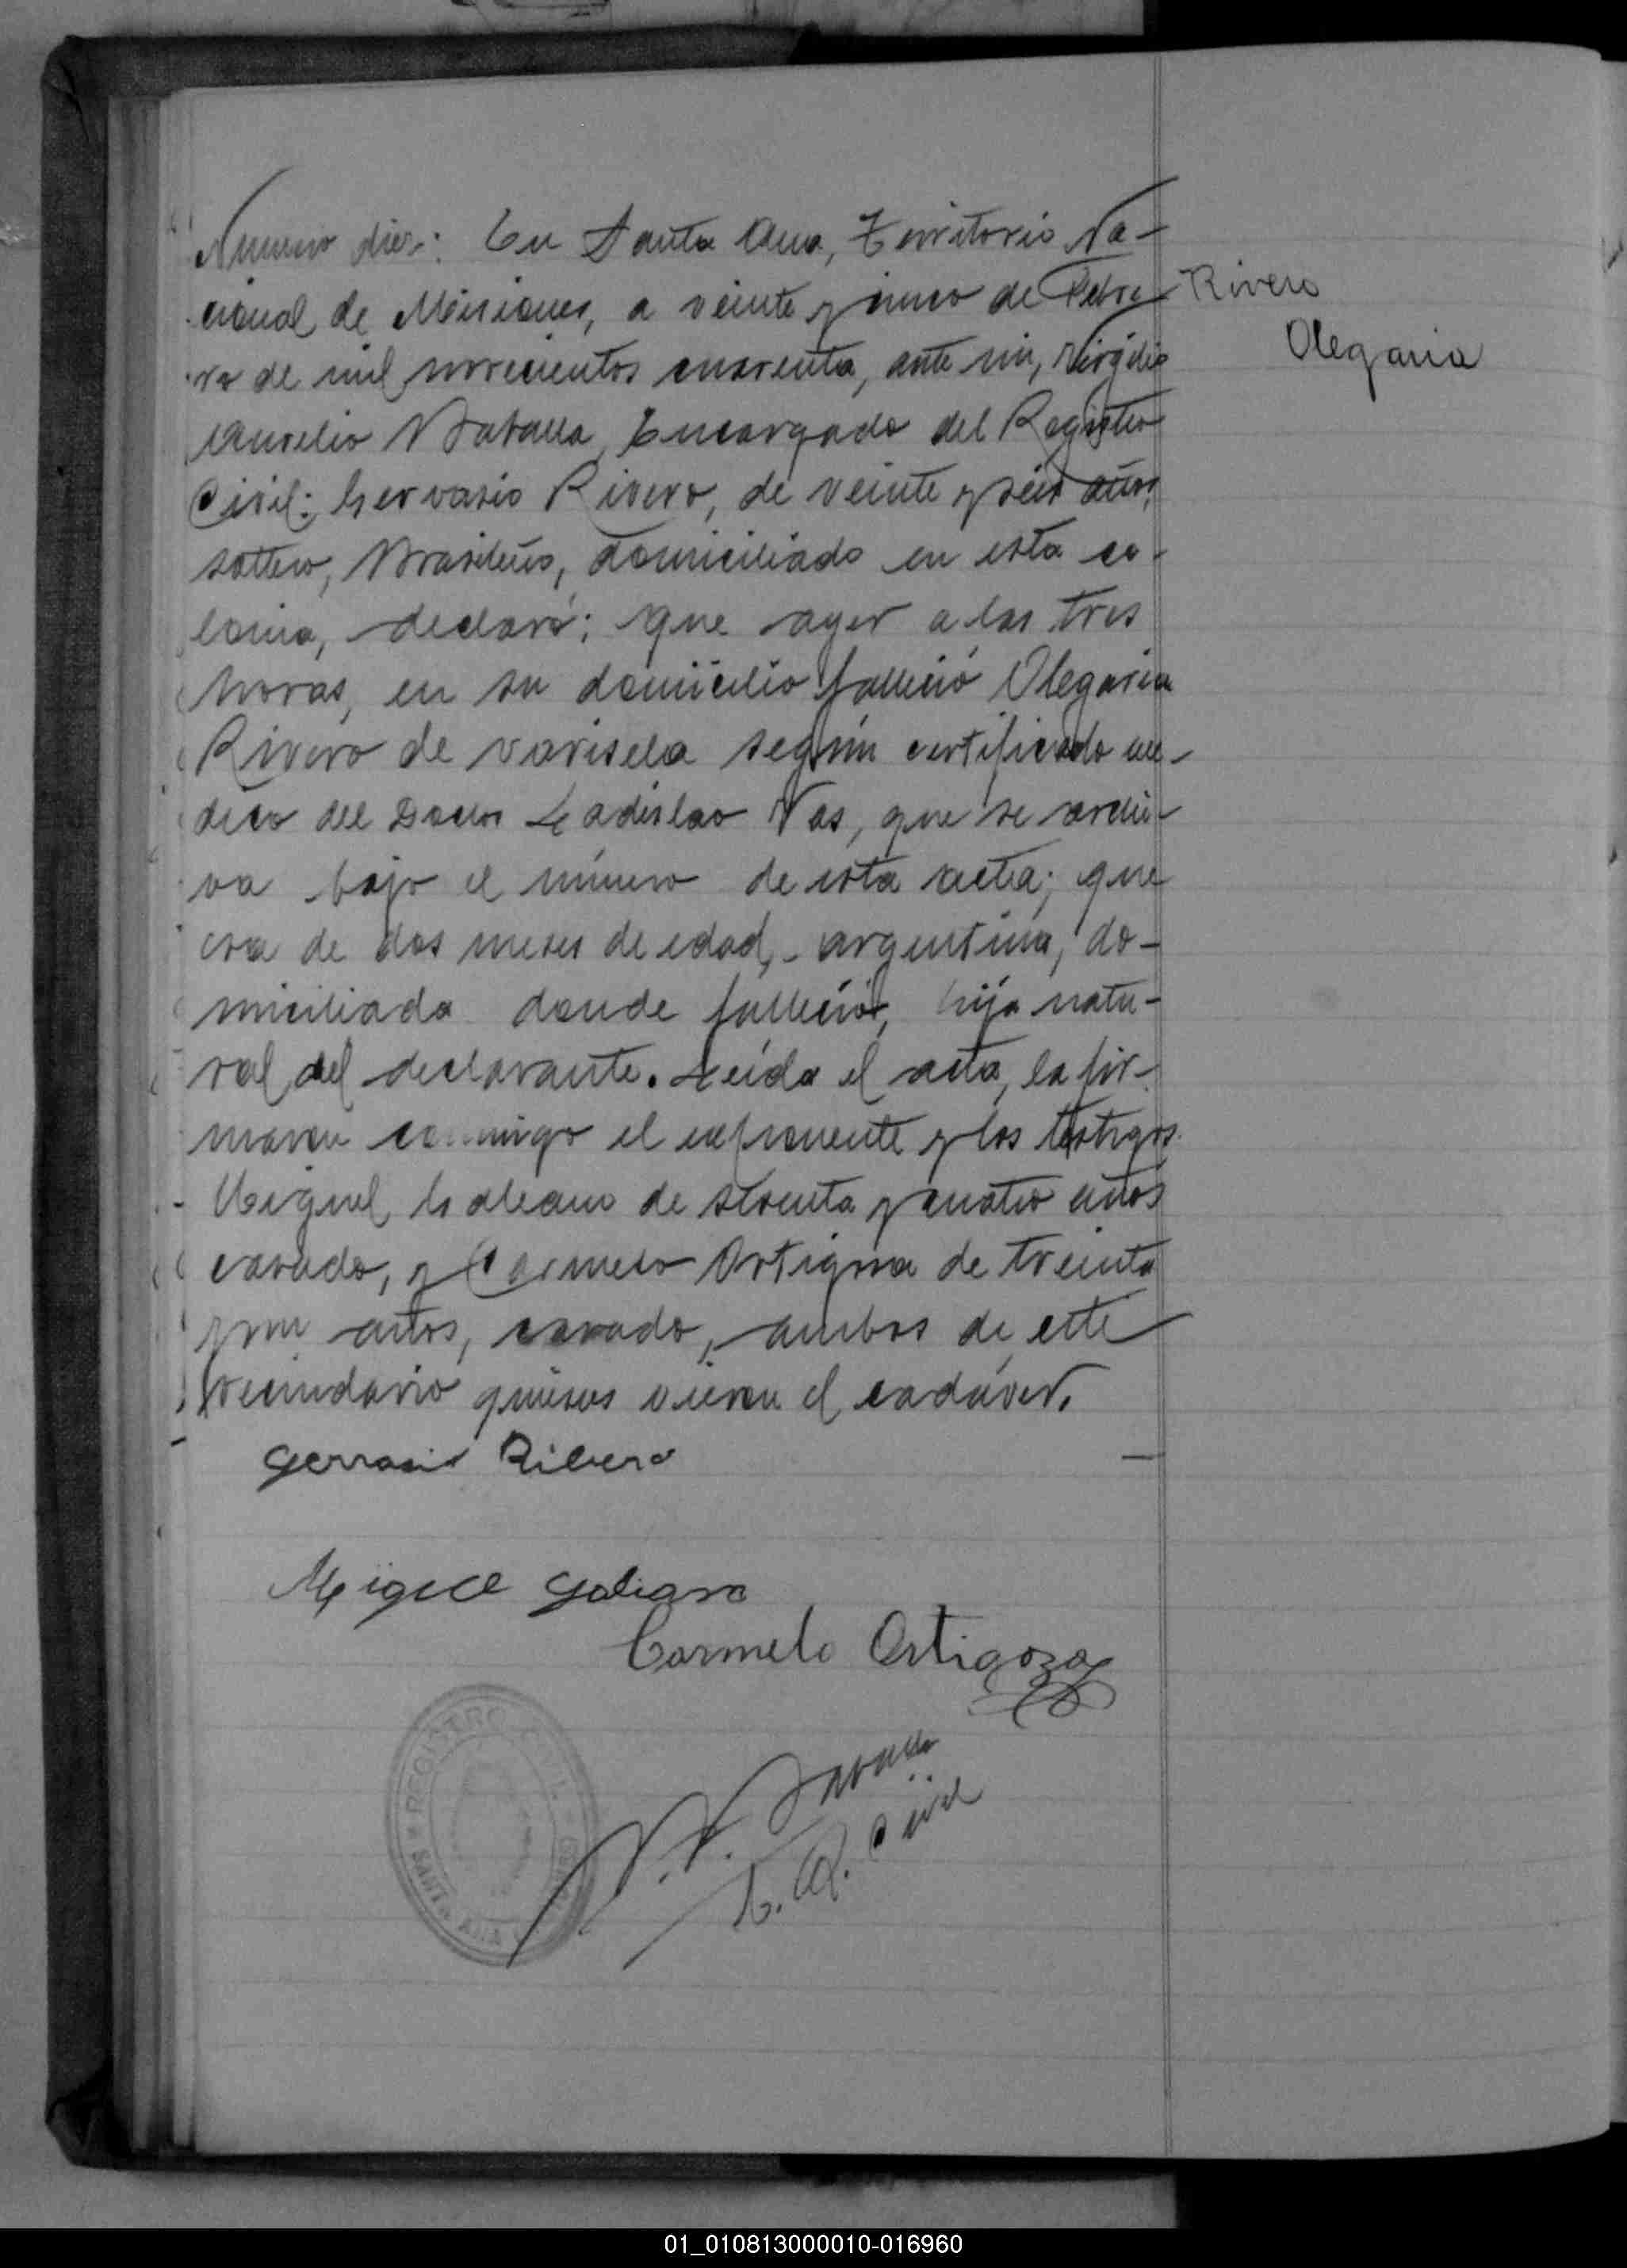 Número diez: En Santa Ana, Territorio Na-
cional de Misiones, a veinte y cinco de Febre
Rivero
Olegaria
ro de mil novecientos cuarenta, ante mi, Virgilio
Aurelio Encargado del Registro
Civil: Gervasio Rivero, de veinte y seis años,
soltero, Brasileño, domiciliado en esta co-
lonia, declaró: que ayer a las tres
horas, en su domicilio falleció Olegaria
Rivero de varisela según certificado mé-
dico del Doctor Ladislao Vas, que se archi-
va bajo el número de esta acta; que
era de dos meses de edad, argentina, do-
miciliada donde falleció, hija natu-
ral del declarante. Leída el acta, la fir-
maron conmigo el exponente y los testigos
Miguel Galeano de y cuatro años
casado, y Carmelo Ortigosa de treinta
y un años, casado, ambos de este
vecindario quienes vieron el cadáver.
Gervasio Ribero
Migel Galiano
Carmelo Ortigoza
REGISTRO CIVIL
SANTA ANA
E. R. Civil
01_010813000010-016960